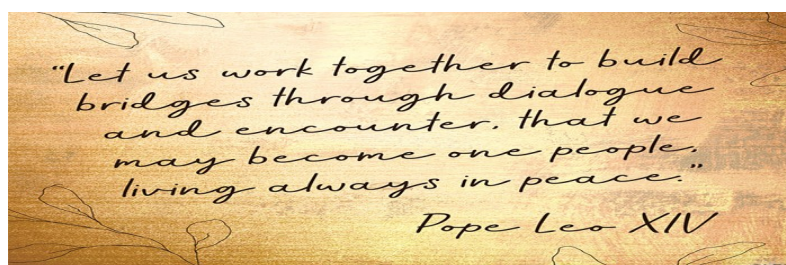 “Let us work together to build
bridges through dialogue
and encounter, that we
may become one people,
living always in peace.”
Pope Leo XIV